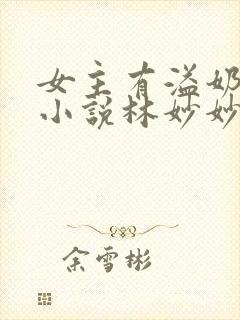 女主有溢奶
小说林妙妙
余雪彬